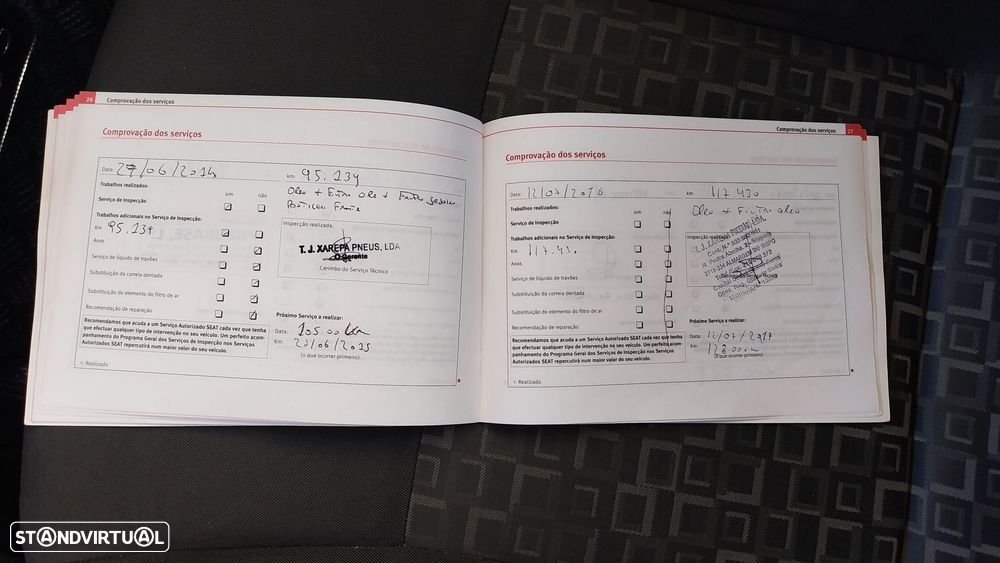 26 Comprovação dos serviços
Comprovação dos serviços
Data: 27/06/2014
km 95.139
Trabalhos realizados:
sim não
Serviço de Inspecção
Óleo + Filtro óleo +
Trabalhos adicionais no Serviço de Inspecção:
Km 95.139
Anos
Serviço de líquido de travões
Substituição da correia dentada
Substituição do elemento do filtro de ar
Recomendação de reparação
Inspecção realizada:
T. J. XAREPA PNEUS, LDA
O Gerente
Carimbo do Serviço Técnico
Próximo Serviço a realizar:
Data: 105.00 km
Km: 27/06/2015
(o que ocorrer primeiro)
Recomendamos que acuda a um Serviço Autorizado SEAT cada vez que tenha
que efectuar qualquer tipo de intervenção no seu veículo. Um perfeito acom-
panhamento do Programa Geral dos Serviços de Inspecção nos Serviços
Autorizados SEAT repercutirá num maior valor do seu veículo.
√: Realizado
Comprovação dos serviços 27
Comprovação dos serviços
Data: 12/07/2016
km 117.430
Trabalhos realizados:
sim não
Serviço de Inspecção
Óleo + Filtro óleo
Trabalhos adicionais no Serviço de Inspecção:
Km 117.43
Anos
Serviço de líquido de travões
Substituição da correia dentada
Substituição do elemento do filtro de ar
Recomendação de reparação
Inspecção realizada:
T. J. XAREPA PNEUS, LDA.
Próximo Serviço a realizar:
Data: 12/07/2017
Km:
(o que ocorrer primeiro)
Recomendamos que acuda a um Serviço Autorizado SEAT cada vez que tenha
que efectuar qualquer tipo de intervenção no seu veículo. Um perfeito acom-
panhamento do Programa Geral dos Serviços de Inspecção nos Serviços
Autorizados SEAT repercutirá num maior valor do seu veículo.
√: Realizado
STANDVIRTUAL